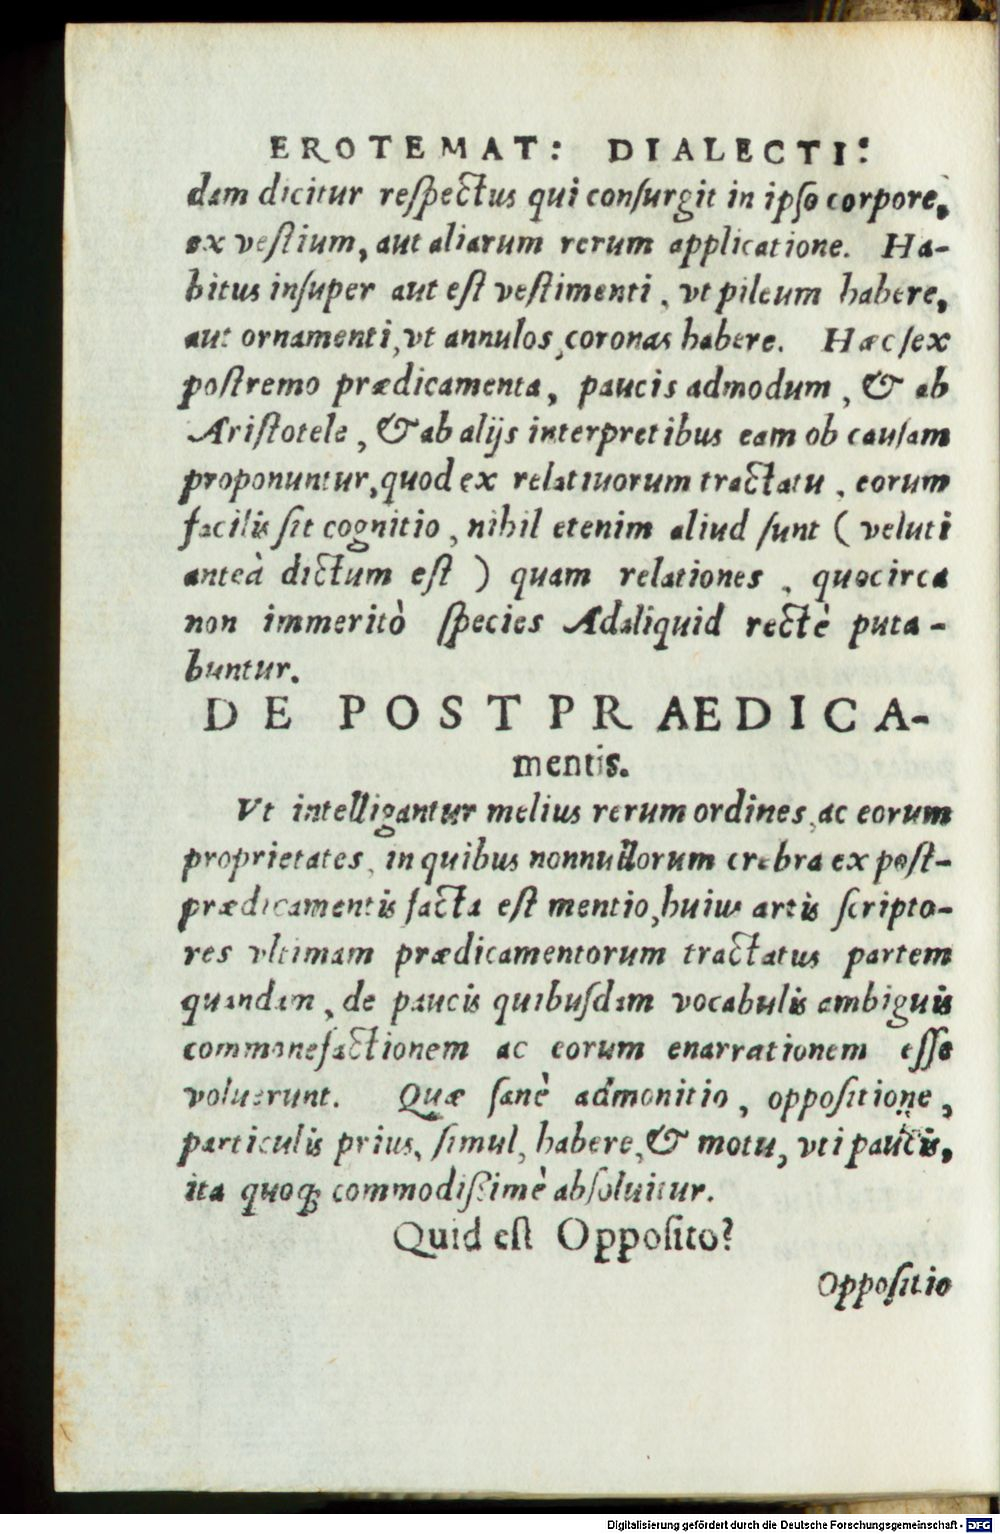 EROTEMAT: DIALECTI:
dam dicitur reſpectus qui conſurgit in ipſo corpore,
ex veſtium, aut aliarum rerum applicatione. Ha-
bitus inſuper aut eſt veſtimenti, vt pileum habere,
aut ornamenti, vt annulos, coronas habere. Hæc ſex
poſtremo prædicamenta, paucis admodum, & ab
Ariſtotele, & ab alijs interpretibus eam ob cauſam
proponuntur, quod ex relatiuorum tractatu, eorum
facilis ſit cognitio, nihil etenim aliud ſunt ( veluti
anteà dictum eſt ) quam relationes, quocirca
non immeritò ſpecies Adaliquid rectè puta-
buntur.
DE POSTPRAEDICA-
mentis.
Vt intelligantur melius rerum ordines, ac eorum
proprietates, in quibus nonnullorum crebra ex poſt-
prædicamentis facta eſt mentio, huius artis ſcripto-
res vltimam prædicamentorum tractatus partem
quandam, de paucis quibuſdam vocabulis ambiguis
commonefactionem ac eorum enarrationem eſſe
voluerunt. Quæ ſanè admonitio, oppoſitione,
particulis prius, ſimul, habere, & motu, vti paucis,
ita quoq; commodiſſimè abſoluitur.
Quid eſt Oppoſito?
Oppoſitio
Digitalisierung gefördert durch die Deutsche Forschungsgemeinschaft - DFG